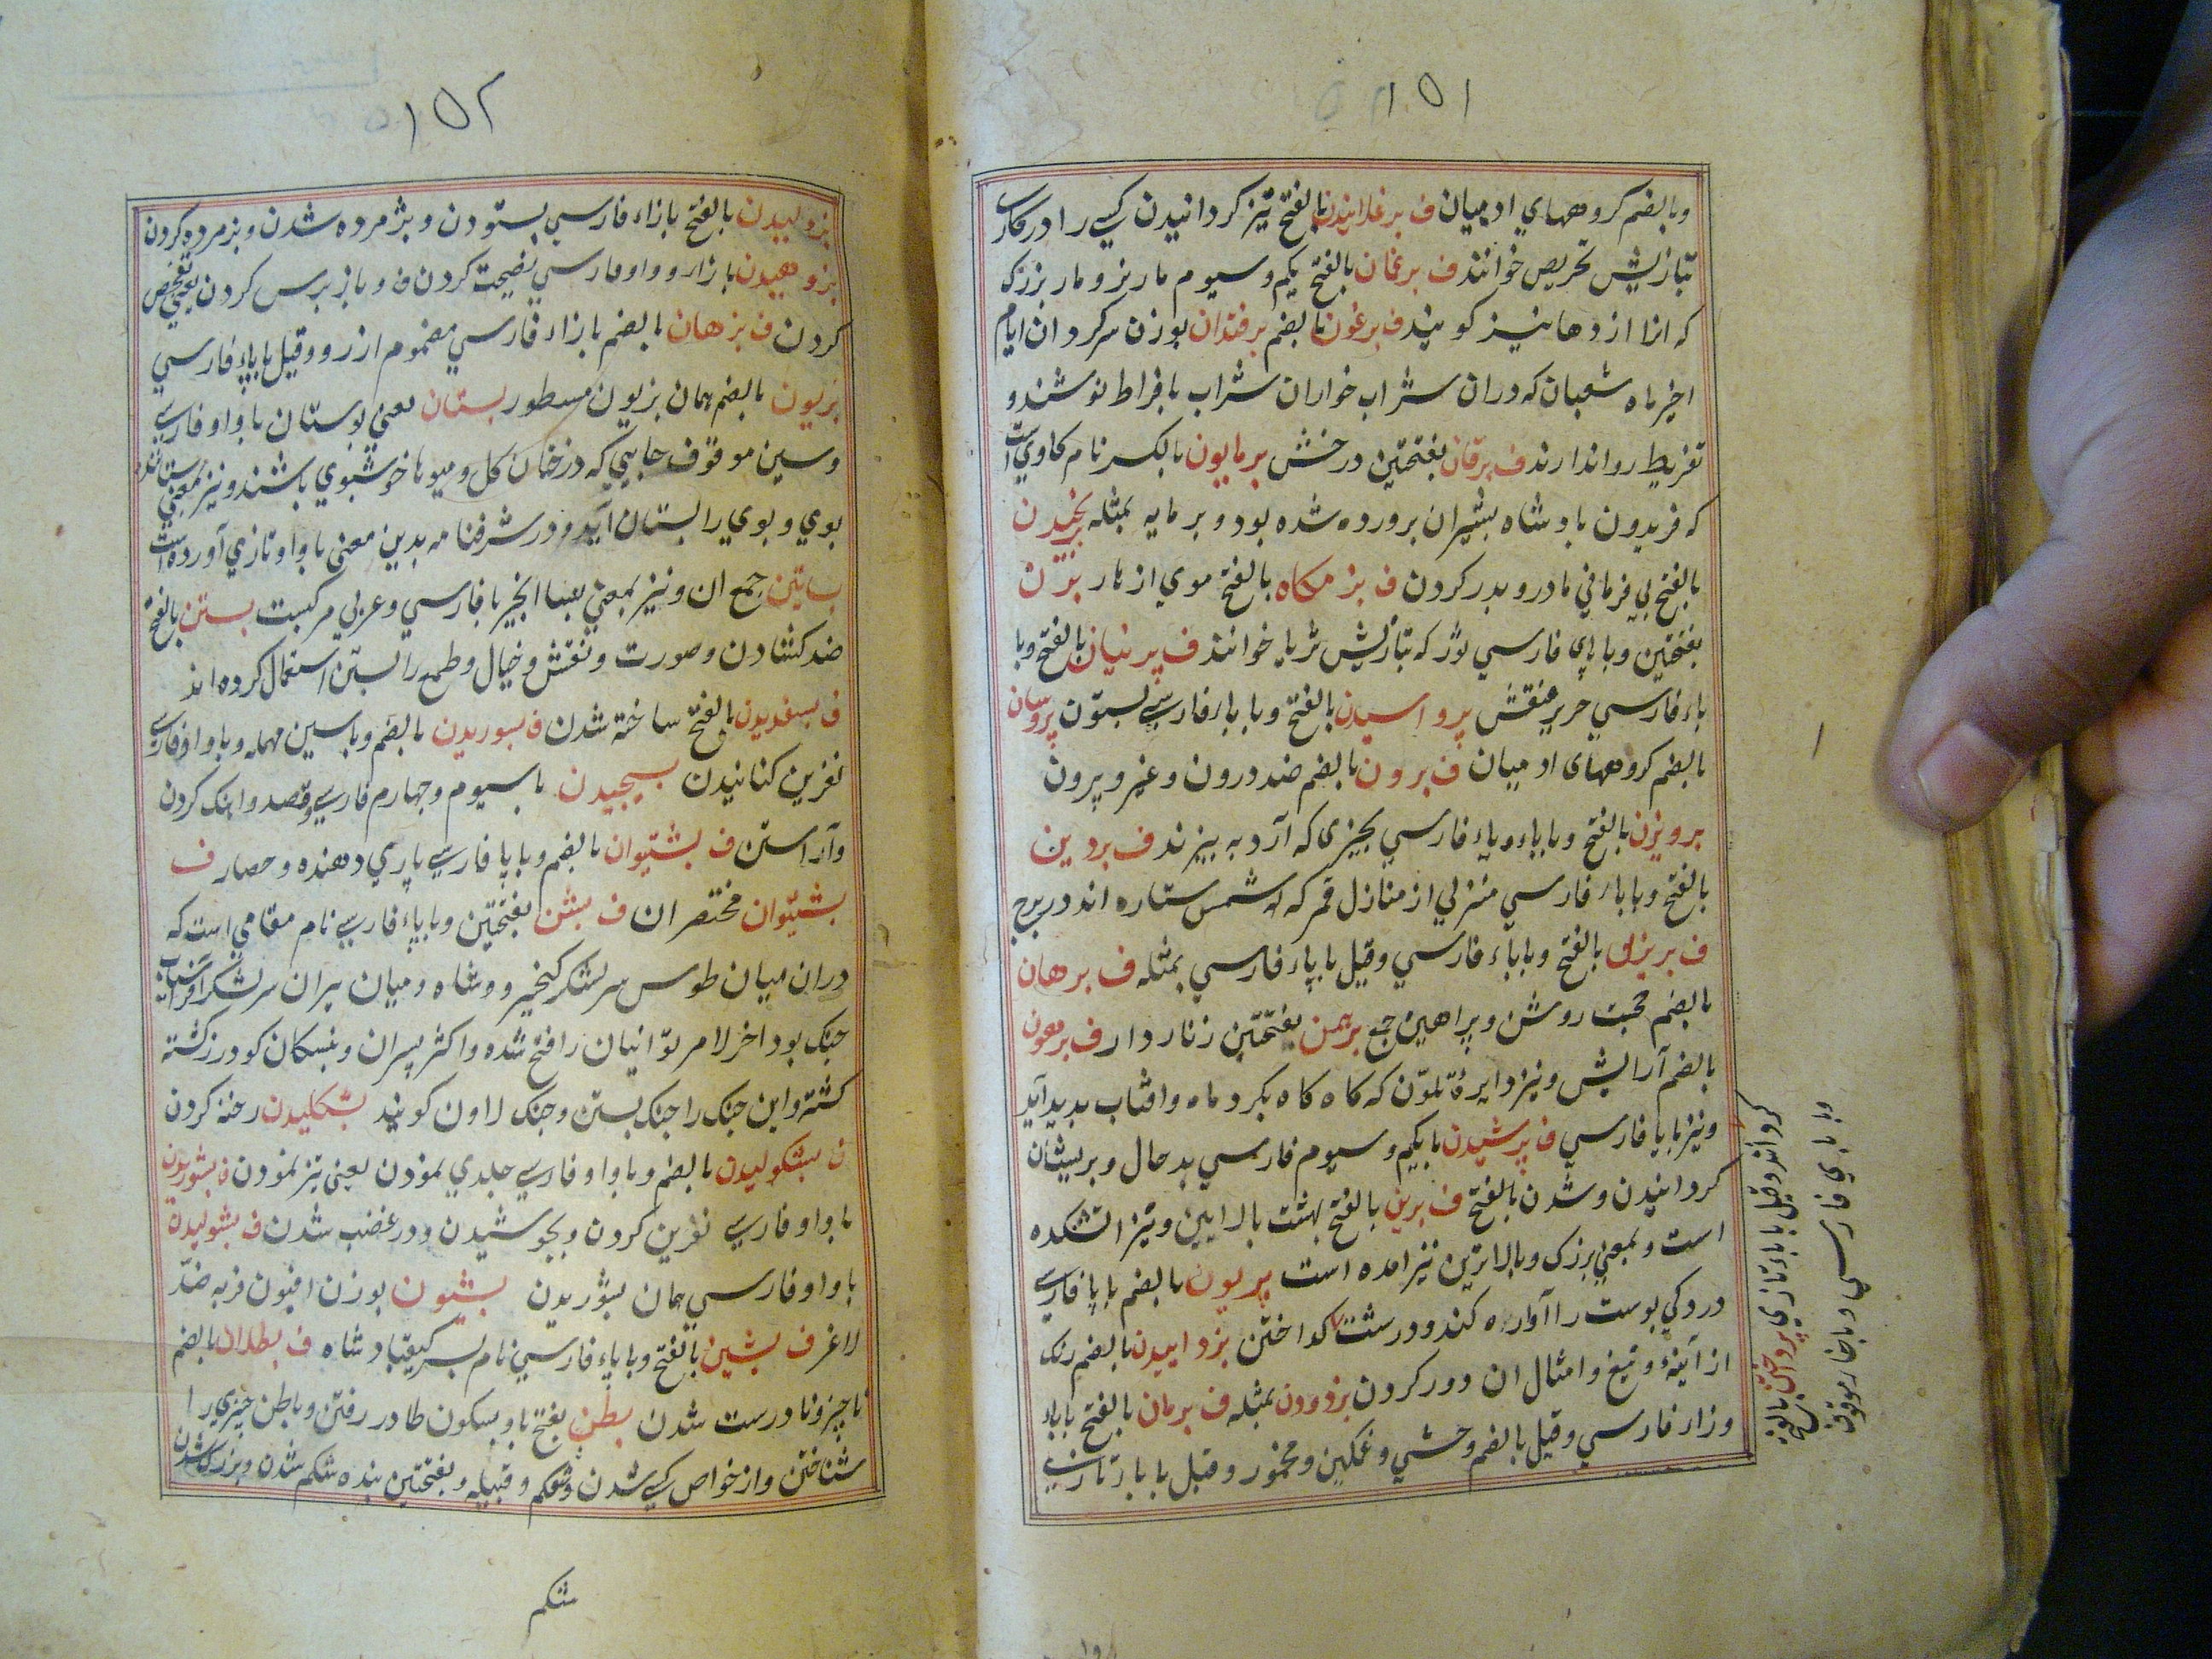 ۱۵۱
وبالضم کروههای ادمیان ف برغلانیدن بالفتح تیز کردانیدن کسی را در کاری
تبازیش تحریص خوانند ف برغمان بالفتح یکم وسیوم مار بزرک
که انرا اژدها نیز کویند ف برغون بالضم برفندان بوزن سرکردان ایام
اخیر ماه شعبان که دران شراب خواران شراب بافراط نوشند و
تفریط روا ندارند ف برقان بفتحتین درخش برمایون بالکسر نام کاوی است
که فریدون بادشاه بشیران برورده شده بود و برمایه بمثله
بالفتح بی فرمانی مادر و بدر کردن ف بزمکاه بالفتح موی ازهار
بفتحتین وبا بای فارسی که تبازیش ثریا خوانند ف پرنیان بالفتح وبا
باء فارسی حریر منقش پرواسیدن بالفتح وبا باء فارسی بستون پروسان
بالضم کروههای ادمیان ف برون بالضم ضد درون وغیر وپرون
برویزن بالفتح وبا یاء وباء فارسی بچیزی که آرد به بیزند ف بردین
بالفتح وبا باء فارسی منزلی از منازل قمر که شش ستاره اند در برج
ف بریزن بالفتح وبا باء فارسی وقیل با باء فارسی بمثله ف برهان
بالضم حجت روشن وبراهین جمع برهمن بفتحتین زنار دار ف برهون
بالضم آرایش ونیز دایرهٔ تلون که کاه کاه بکرد ماه وافتاب بدید آید
ونیز با یا فارسی ف پرشیدن با یکم وسیوم فارسی بدحال وبریشان
کردانیدن وشدن بالفتح ف برین بالفتح بهشت بالایین ونیز اتشکده
است وبمعنی بزرک وبالاترین نیز امده است پریون بالضم با پا فارسی
دردکی بوست را آواره کند ودرشت کداختن بزداییدن بالضم زنک
از آینه وتیغ وامثال ان دور کردن بزدودن بمثله ف بزمان بالفتح باباء
وزاء فارسی وقیل بالضم وحشی وغمکین ومخمور وقیل با باء تازی
کرد اند وقیل با باء تازی پرداختن بالفتح
وبا باء فارسی وباخاء موقوف
۱۵۲
بزولیدن بالفتح با زاء فارسی بستودن وبژمرده شدن وبزمرده کردن
بزوهیدن با زاء و واو فارسی نصیحت کردن ف وباز برس کردن یعنی تفحص
کردن ف بزهان بالضم با زاء فارسی مضموم ارزو وقیل با باء فارسی
بزیون بالضم همان بزیون مسطور بستان یعنی بوستان با واو فارسی
وسین موقوف جایی که درختان کل ومیوها خوشبوی باشند ونیز بمعنی ستاننده
بوی وبوی را بستان اید ودر شرفنامه بدین معنی با واو تازی آورده است
بساتین جمع ان ونیز بمعنی بسا انجیر با فارسی وعربی مرکبست بستن بالفتح
ضد کشادن وصورت ونقش وخیال وطمع را بستن استعمال کرده اند
ف بسغدیدن بالفتح ساخته شدن ف بسوریدن بالضم وباسین مهمله وبا واو فارسی
نفرین کنانیدن بسیجیدن با سیوم وچهارم فارسی قصد واهنک کردن
وآراستن ف بشتیوان بالضم وبا پا فارسی یاری دهنده وحصار ف
بشتوان مختصر ان ف بشن بفتحتین وبا باء فارسی نام مقامی است که
دران میان طوس سرلشکر کیخسرو شاه ومیان پیران سرلشکر افراسیاب
جنک بود اخر لامر تورانیان را فتح شده واکثر پسران ونبسکان کودرز کشته
کشته واین جنک را جنک بشن وجنک لاون کویند بشکلیدن رخنه کردن
ف بشکولیدن بالضم وبا واو فارسی جلدی نمودن یعنی تیز نمودن ف بشوریدن
با واو فارسی نفرین کردن وبجوشیدن ودر غضب شدن ف بشولیدن
با واو فارسی همان بشوریدن بشیون بوزن افیون فربه ضد
لاغر ف بشین بالفتح وبا یاء فارسی نام بسر کیقباد شاه ف بطلان بالضم
ناچیز ونادرست شدن بطن بفتح با وبسکون طا در رفتن وباطن چیزی را
شناختن واز خواص کسی شدن وشکم وقبیله وبفتحتین بنده شکم شدن وبزرک شدن
شکم